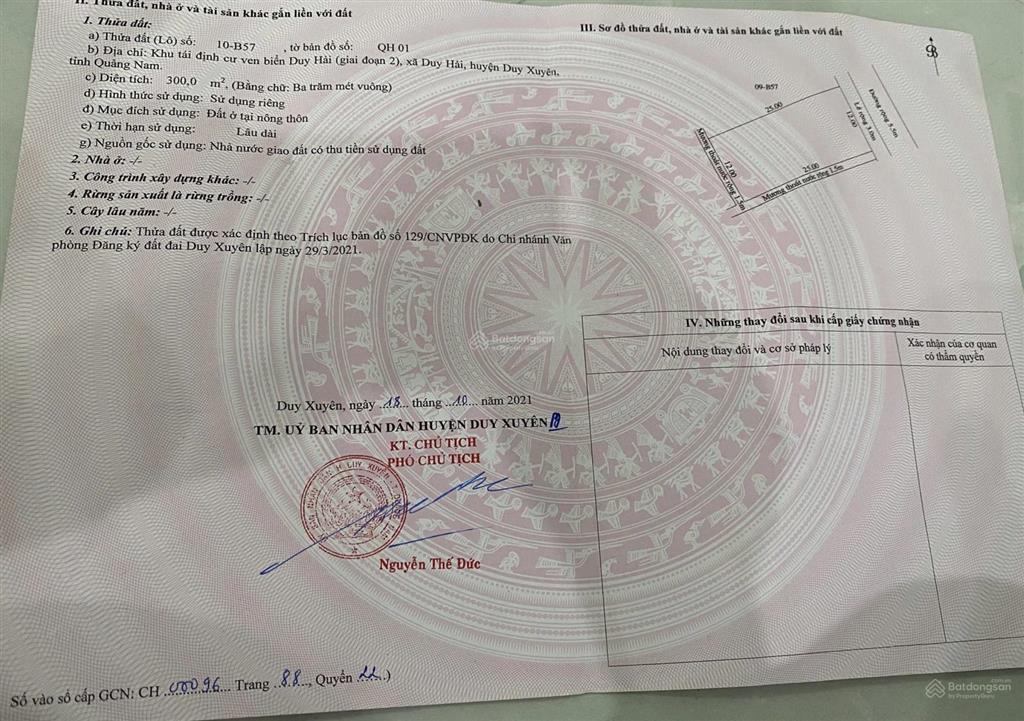 II. Thửa đất, nhà ở và tài sản khác gắn liền với đất
1. Thửa đất:
a) Thửa đất (Lô) số: 10-B57 , tờ bản đồ số: QH 01
b) Địa chỉ: Khu tái định cư ven biển Duy Hải (giai đoạn 2), xã Duy Hải, huyện Duy Xuyên,
tỉnh Quảng Nam.
c) Diện tích: 300,0 m², (Bằng chữ: Ba trăm mét vuông)
d) Hình thức sử dụng: Sử dụng riêng
đ) Mục đích sử dụng: Đất ở tại nông thôn
e) Thời hạn sử dụng: Lâu dài
g) Nguồn gốc sử dụng: Nhà nước giao đất có thu tiền sử dụng đất
2. Nhà ở: -/-
3. Công trình xây dựng khác: -/-
4. Rừng sản xuất là rừng trồng: -/-
5. Cây lâu năm: -/-
6. Ghi chú: Thửa đất được xác định theo Trích lục bản đồ số 129/CNVPĐK do Chi nhánh Văn
phòng Đăng ký đất đai Duy Xuyên lập ngày 29/3/2021.
Duy Xuyên, ngày 18 tháng 10 năm 2021
TM. UỶ BAN NHÂN DÂN HUYỆN DUY XUYÊN
KT. CHỦ TỊCH
PHÓ CHỦ TỊCH
Nguyễn Thế Đức
Số vào sổ cấp GCN: CH 00096 Trang 88, Quyển 22)
III. Sơ đồ thửa đất, nhà ở và tài sản khác gắn liền với đất
B
09-B57
25.00
12.00
Lề rộng 3.0m
Đường rộng 5.5m
Mương thoát nước rộng 1.5m
12.00
25.00
Mương thoát nước rộng 1.5m
IV. Những thay đổi sau khi cấp giấy chứng nhận
Nội dung thay đổi và cơ sở pháp lý
Xác nhận của cơ quan
có thẩm quyền
Batdongsan
by PropertyGuru
Batdongsan.com.vn
by PropertyGuru